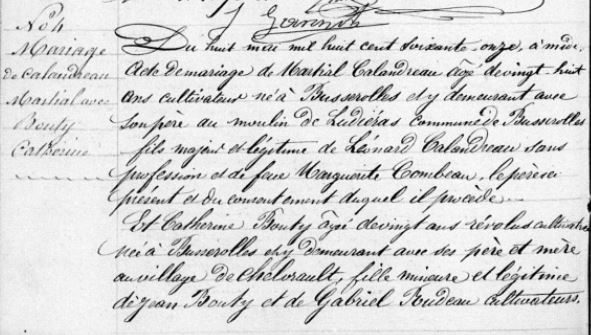 Nº 4
Mariage
de Calandreau
Martial avec
Bouty
Catherine
Du huit mai mil huit cent soixante-onze, à midi
Acte de mariage de Martial Calandreau âgé de vingt-huit
ans cultivateur né à Busserolles et y demeurant avec
son père au moulin de Ludiéras commune de Busserolles
fils majeur et légitime de Léonard Calandreau sans
profession et de feue Marguerite Combeau, le père ici
présent et du consentement duquel il procède.
Et Catherine Bouty âgé de vingt ans révolus cultivatrice
née à Busserolles et y demeurant avec ses père et mère
au village de fille mineure et légitime
de Jean Bouty et de Gabriel cultivateurs.